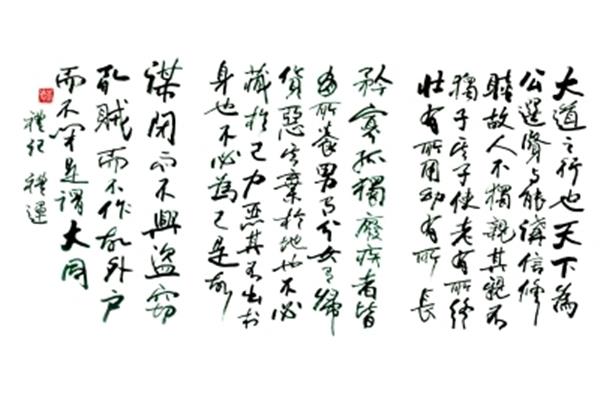 大道之行也天下為
公選賢与能講信修
睦故人不獨親其親不
獨子其子使老有所終
壯有所用幼有所長
矜寡孤獨廢疾者皆
有所養男有分女有歸
貨惡其棄於地也不必
藏於己力惡其不出於
身也不必為己是故
謀閉而不興盜竊
亂賊而不作故外戶
而不閉是謂大同
禮記 禮運